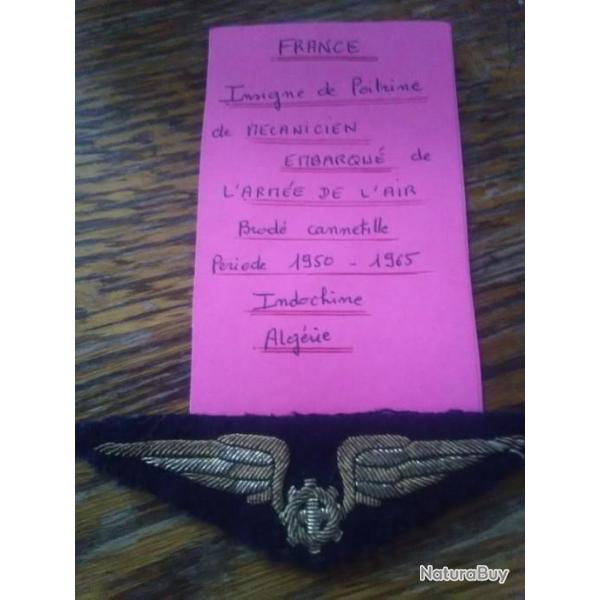 FRANCE
Insigne de Poitrine
de MECANICIEN
EMBARQUÉ de
L'ARMÉE DE L'AIR
Brodé cannetille
Periode 1950 - 1965
Indochine
Algérie
NaturaBuy